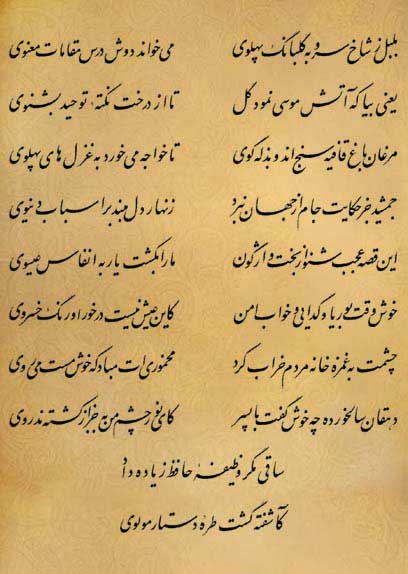 بلبل ز شاخ سرو به گلبانگ پهلوی می خواند دوش درس مقامات معنوی
یعنی بیا که آتش موسی نمود گل تا از درخت نکتهٔ توحید بشنوی
مرغان باغ قافیه سنج اند و بذله گوی تا خواجه می خورد به غزل های پهلوی
جمشید جز حکایت جام از جهان نبرد زنهار دل مبند بر اسباب دنیوی
این قصه عجب شنو از بخت واژگون ما را بکشت یار به انفاس عیسوی
خوش وقت بوریا و گدایی و خواب امن کاین عیش نیست در خور اورنگ خسروی
چشمت به غمزه خانه مردم خراب کرد مخموری ات مباد که خوش مست می روی
دهقان سالخورده چه خوش گفت با پسر کای نور چشم من به جز از کشته ندروی
ساقی مگر وظیفهٔ حافظ زیاده داد
کآشفته گشت طرهٔ دستار مولوی